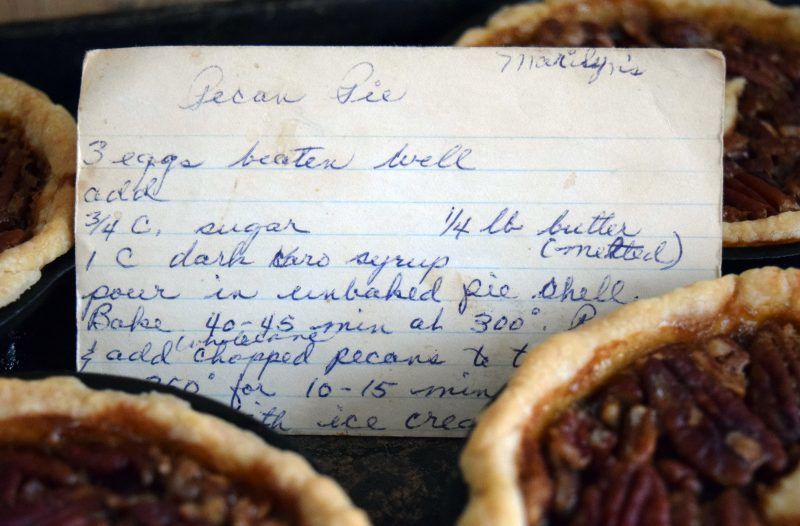 Marilyn's
Pecan Pie
3 eggs beaten well
add
3/4 C. sugar 1/4 lb butter
1 C dark Karo syrup (melted)
pour in unbaked pie shell.
Bake 40-45 min at 300°.
& add chopped pecans to
350° for 10-15 min
with ice